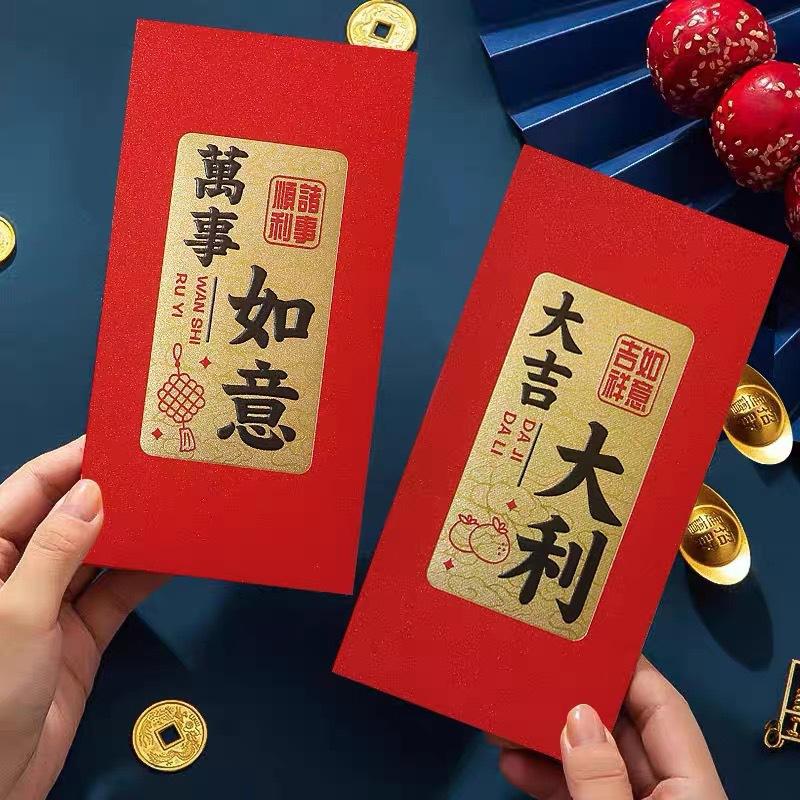 萬事
如意
諸事
順利
WAN SHI
RU YI
大吉
大利
如意
吉祥
DA JI
DA LI